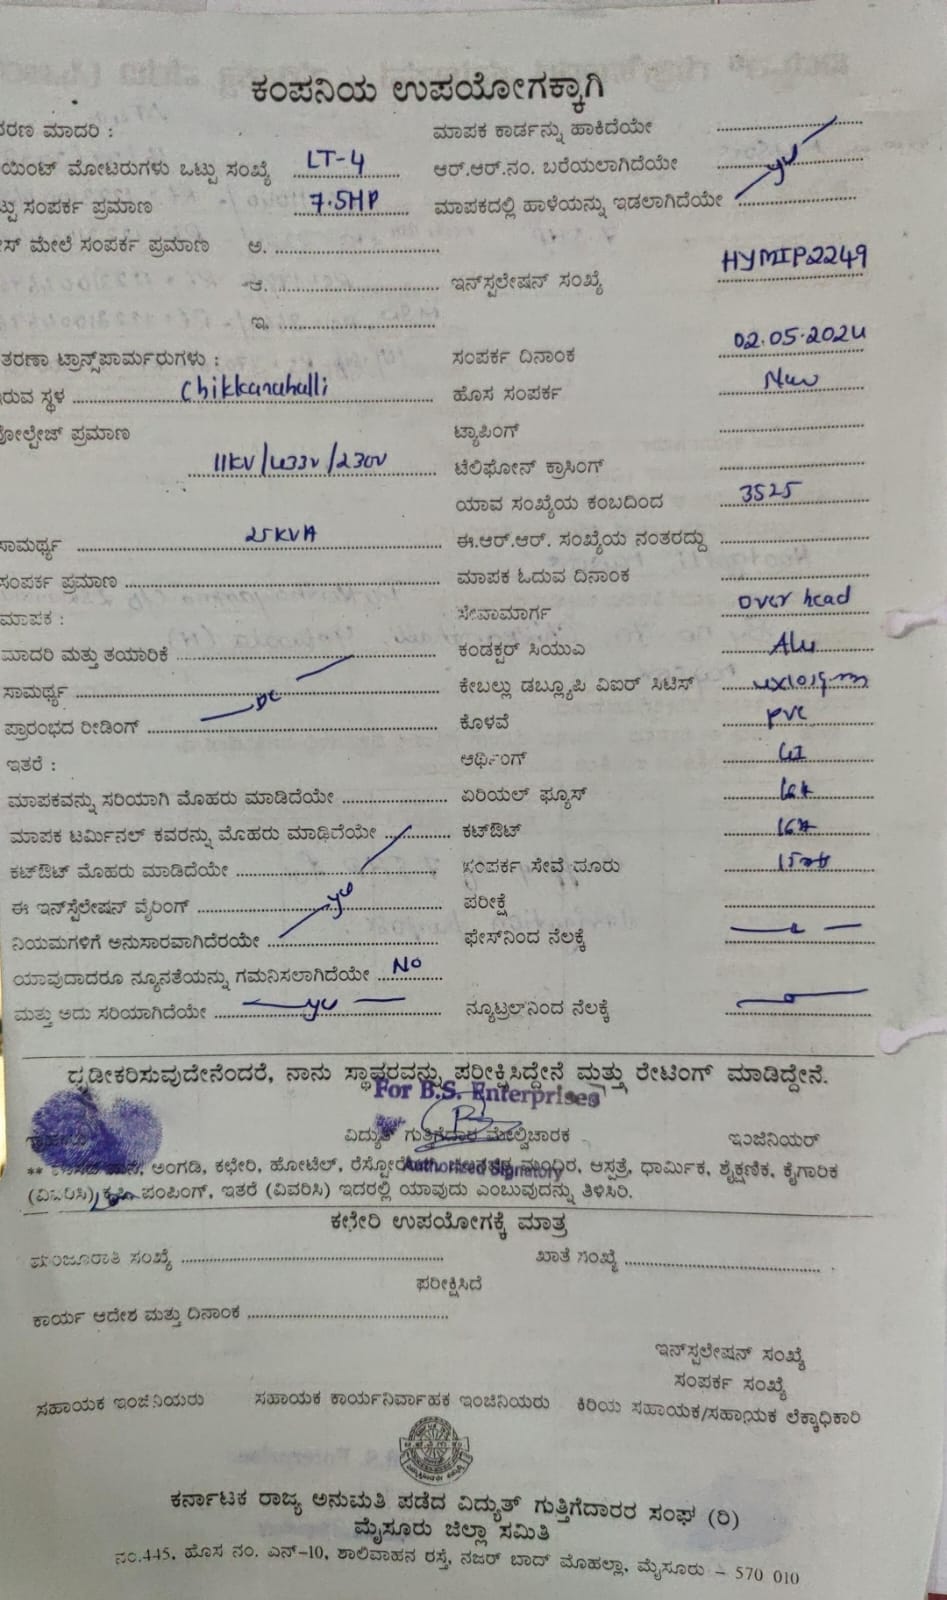 ಕಂಪನಿಯ ಉಪಯೋಗಕ್ಕಾಗಿ
ರಣ ಮಾದರಿ : ಮಾಪಕ ಕಾರ್ಡನ್ನು ಹಾಕಿದೆಯೇ
ಯಿಂಟ್ ಮೋಟರುಗಳು ಒಟ್ಟು ಸಂಖ್ಯೆ LT-4 ಆರ್.ಆರ್.ನಂ. ಬರೆಯಲಾಗಿದೆಯೇ yes
ಟ್ಟು ಸಂಪರ್ಕ ಪ್ರಮಾಣ 7.5HP ಮಾಪಕದಲ್ಲಿ ಹಾಳೆಯನ್ನು ಇಡಲಾಗಿದೆಯೇ
ಸ್ ಮೇಲೆ ಸಂಪರ್ಕ ಪ್ರಮಾಣ ಅ.
ಆ. ಇನ್‌ಸ್ಪಲೇಷನ್ ಸಂಖ್ಯೆ HYMIP2249
ಇ.
ತರಣಾ ಟ್ರಾನ್ಸ್‌ಪಾರ್ಮರುಗಳು : ಸಂಪರ್ಕ ದಿನಾಂಕ 02.05.2024
ರುವ ಸ್ಥಳ Chikkanahalli ಹೊಸ ಸಂಪರ್ಕ New
ೋಲ್ಟೇಜ್ ಪ್ರಮಾಣ ಟ್ಯಾಪಿಂಗ್
11KV/433V/230V ಟೆಲಿಫೋನ್ ಕ್ರಾಸಿಂಗ್
ಯಾವ ಸಂಖ್ಯೆಯ ಕಂಬದಿಂದ 3525
ಸಾಮರ್ಥ್ಯ 25KVA ಈ.ಆರ್.ಆರ್. ಸಂಖ್ಯೆಯ ನಂತರದ್ದು
ಸಂಪರ್ಕ ಪ್ರಮಾಣ ಮಾಪಕ ಓದುವ ದಿನಾಂಕ
ಮಾಪಕ : ಸೇವಾಮಾರ್ಗ over head
ಮಾದರಿ ಮತ್ತು ತಯಾರಿಕೆ ಕಂಡಕ್ಟರ್ ಸಿಯುಎ Alu
ಸಾಮರ್ಥ್ಯ ಕೇಬಲ್ಲು ಡಬ್ಲ್ಯೂಪಿ ವಿಐರ್ ಸಿಟಿಸ್ 4x10sqmm
ಪ್ರಾರಂಭದ ರೀಡಿಂಗ್ DC ಕೊಳವೆ pvc
ಇತರೆ : ಆರ್ಥಿಂಗ್ GI
ಮಾಪಕವನ್ನು ಸರಿಯಾಗಿ ಮೊಹರು ಮಾಡಿದೆಯೇ ಏರಿಯಲ್ ಫ್ಯೂಸ್ 16A
ಮಾಪಕ ಟರ್ಮಿನಲ್ ಕವರನ್ನು ಮೊಹರು ಮಾಡಿದೆಯೇ ಕಟ್‌ಔಟ್ 16A
ಕಟ್‌ಔಟ್ ಮೊಹರು ಮಾಡಿದೆಯೇ ಸಂಪರ್ಕ ಸೇವೆ ದೂರು
ಈ ಇನ್‌ಸ್ಪೆಲೇಷನ್ ವೈರಿಂಗ್ yes ಪರೀಕ್ಷೆ
ನಿಯಮಗಳಿಗೆ ಅನುಸಾರವಾಗಿದೆರಯೇ ಫೇಸ್‌ನಿಂದ ನೆಲಕ್ಕೆ
ಯಾವುದಾದರೂ ನ್ಯೂನತೆಯನ್ನು ಗಮನಿಸಲಾಗಿದೆಯೇ No
ಮತ್ತು ಅದು ಸರಿಯಾಗಿದೆಯೇ yes ನ್ಯೂಟ್ರಲ್‌ನಿಂದ ನೆಲಕ್ಕೆ
ದೃಡೀಕರಿಸುವುದೇನೆಂದರೆ, ನಾನು ಸ್ಥಾವರವನ್ನು ಪರೀಕ್ಷಿಸಿದ್ದೇನೆ ಮತ್ತು ರೇಟಿಂಗ್ ಮಾಡಿದ್ದೇನೆ.
For B.S. Enterprises
ವಿದ್ಯುತ್ ಗುತ್ತಿಗೆದಾರ ಮೇಲ್ವಿಚಾರಕ ಇಂಜಿನಿಯರ್
Authorized Signatory
** ಅಂಗಡಿ, ಕಛೇರಿ, ಹೋಟೆಲ್, ಮಂದಿರ, ಆಸ್ಪತ್ರೆ, ಧಾರ್ಮಿಕ, ಶೈಕ್ಷಣಿಕ, ಕೈಗಾರಿಕ
(ವಿವರಿಸಿ) ಕೃಷಿ ಪಂಪಿಂಗ್, ಇತರೆ (ವಿವರಿಸಿ) ಇದರಲ್ಲಿ ಯಾವುದು ಎಂಬುವುದನ್ನು ತಿಳಿಸಿರಿ.
ಕಛೇರಿ ಉಪಯೋಗಕ್ಕೆ ಮಾತ್ರ
ಮಂಜೂರಾತಿ ಸಂಖ್ಯೆ ಖಾತೆ ಸಂಖ್ಯೆ
ಪರೀಕ್ಷಿಸಿದೆ
ಕಾರ್ಯ ಆದೇಶ ಮತ್ತು ದಿನಾಂಕ
ಇನ್‌ಸ್ಪಲೇಷನ್ ಸಂಖ್ಯೆ
ಸಂಪರ್ಕ ಸಂಖ್ಯೆ
ಸಹಾಯಕ ಇಂಜಿನಿಯರು ಸಹಾಯಕ ಕಾರ್ಯನಿರ್ವಾಹಕ ಇಂಜಿನಿಯರು ಕಿರಿಯ ಸಹಾಯಕ/ಸಹಾಯಕ ಲೆಕ್ಕಾಧಿಕಾರಿ
ಕರ್ನಾಟಕ ರಾಜ್ಯ ಅನುಮತಿ ಪಡೆದ ವಿದ್ಯುತ್ ಗುತ್ತಿಗೆದಾರರ ಸಂಘ (ರಿ)
ಮೈಸೂರು ಜಿಲ್ಲಾ ಸಮಿತಿ
ನಂ.445, ಹೊಸ ನಂ. ಎನ್-10, ಶಾಲಿವಾಹನ ರಸ್ತೆ, ನಜರ್ ಬಾದ್ ಮೊಹಲ್ಲಾ, ಮೈಸೂರು - 570 010